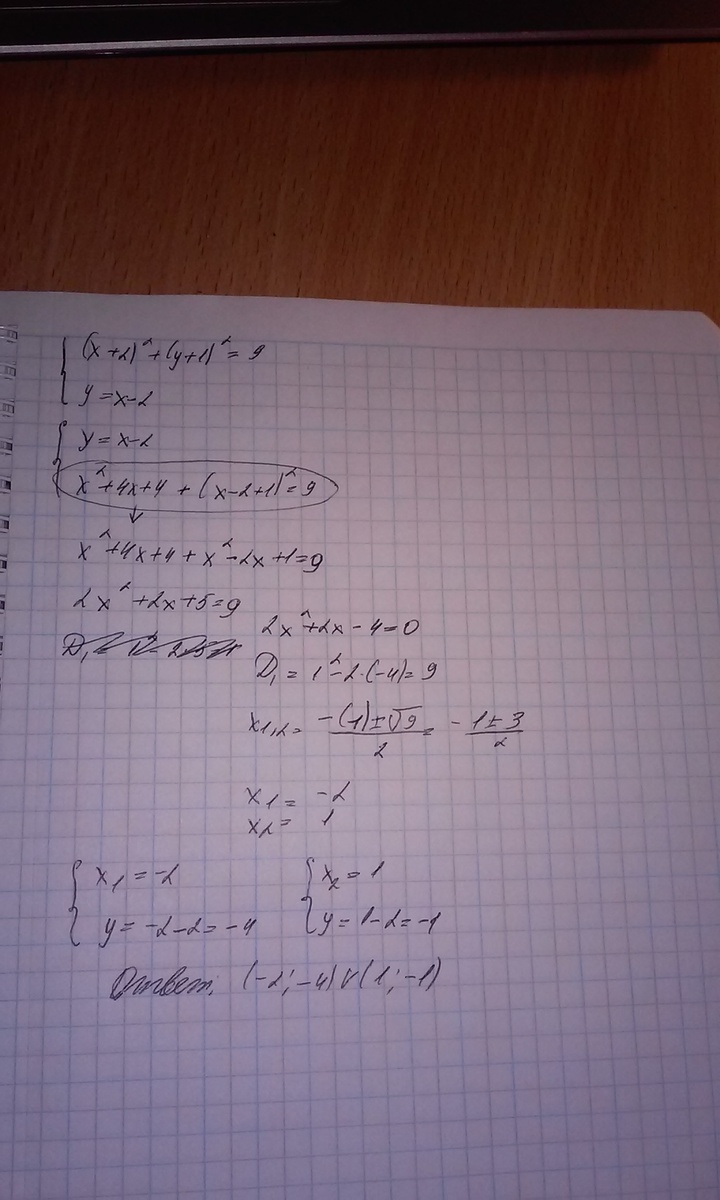 (x+2)²+(y+1)²=9
y=x-2
y=x-2
x²+4x+4+(x-2+1)²=9
x²+4x+4+x²-2x+1=9
2x²+2x+5=9
2x²+2x-4=0
D₁=1²-2·(-4)=9
x1,2=-(1)±√9/2=-1±3/2
x1=-2
x2=1
x1=-2
y=-2-2=-4
x2=1
y=1-2=-1
Ответ: (-2;-4)v(1;-1)